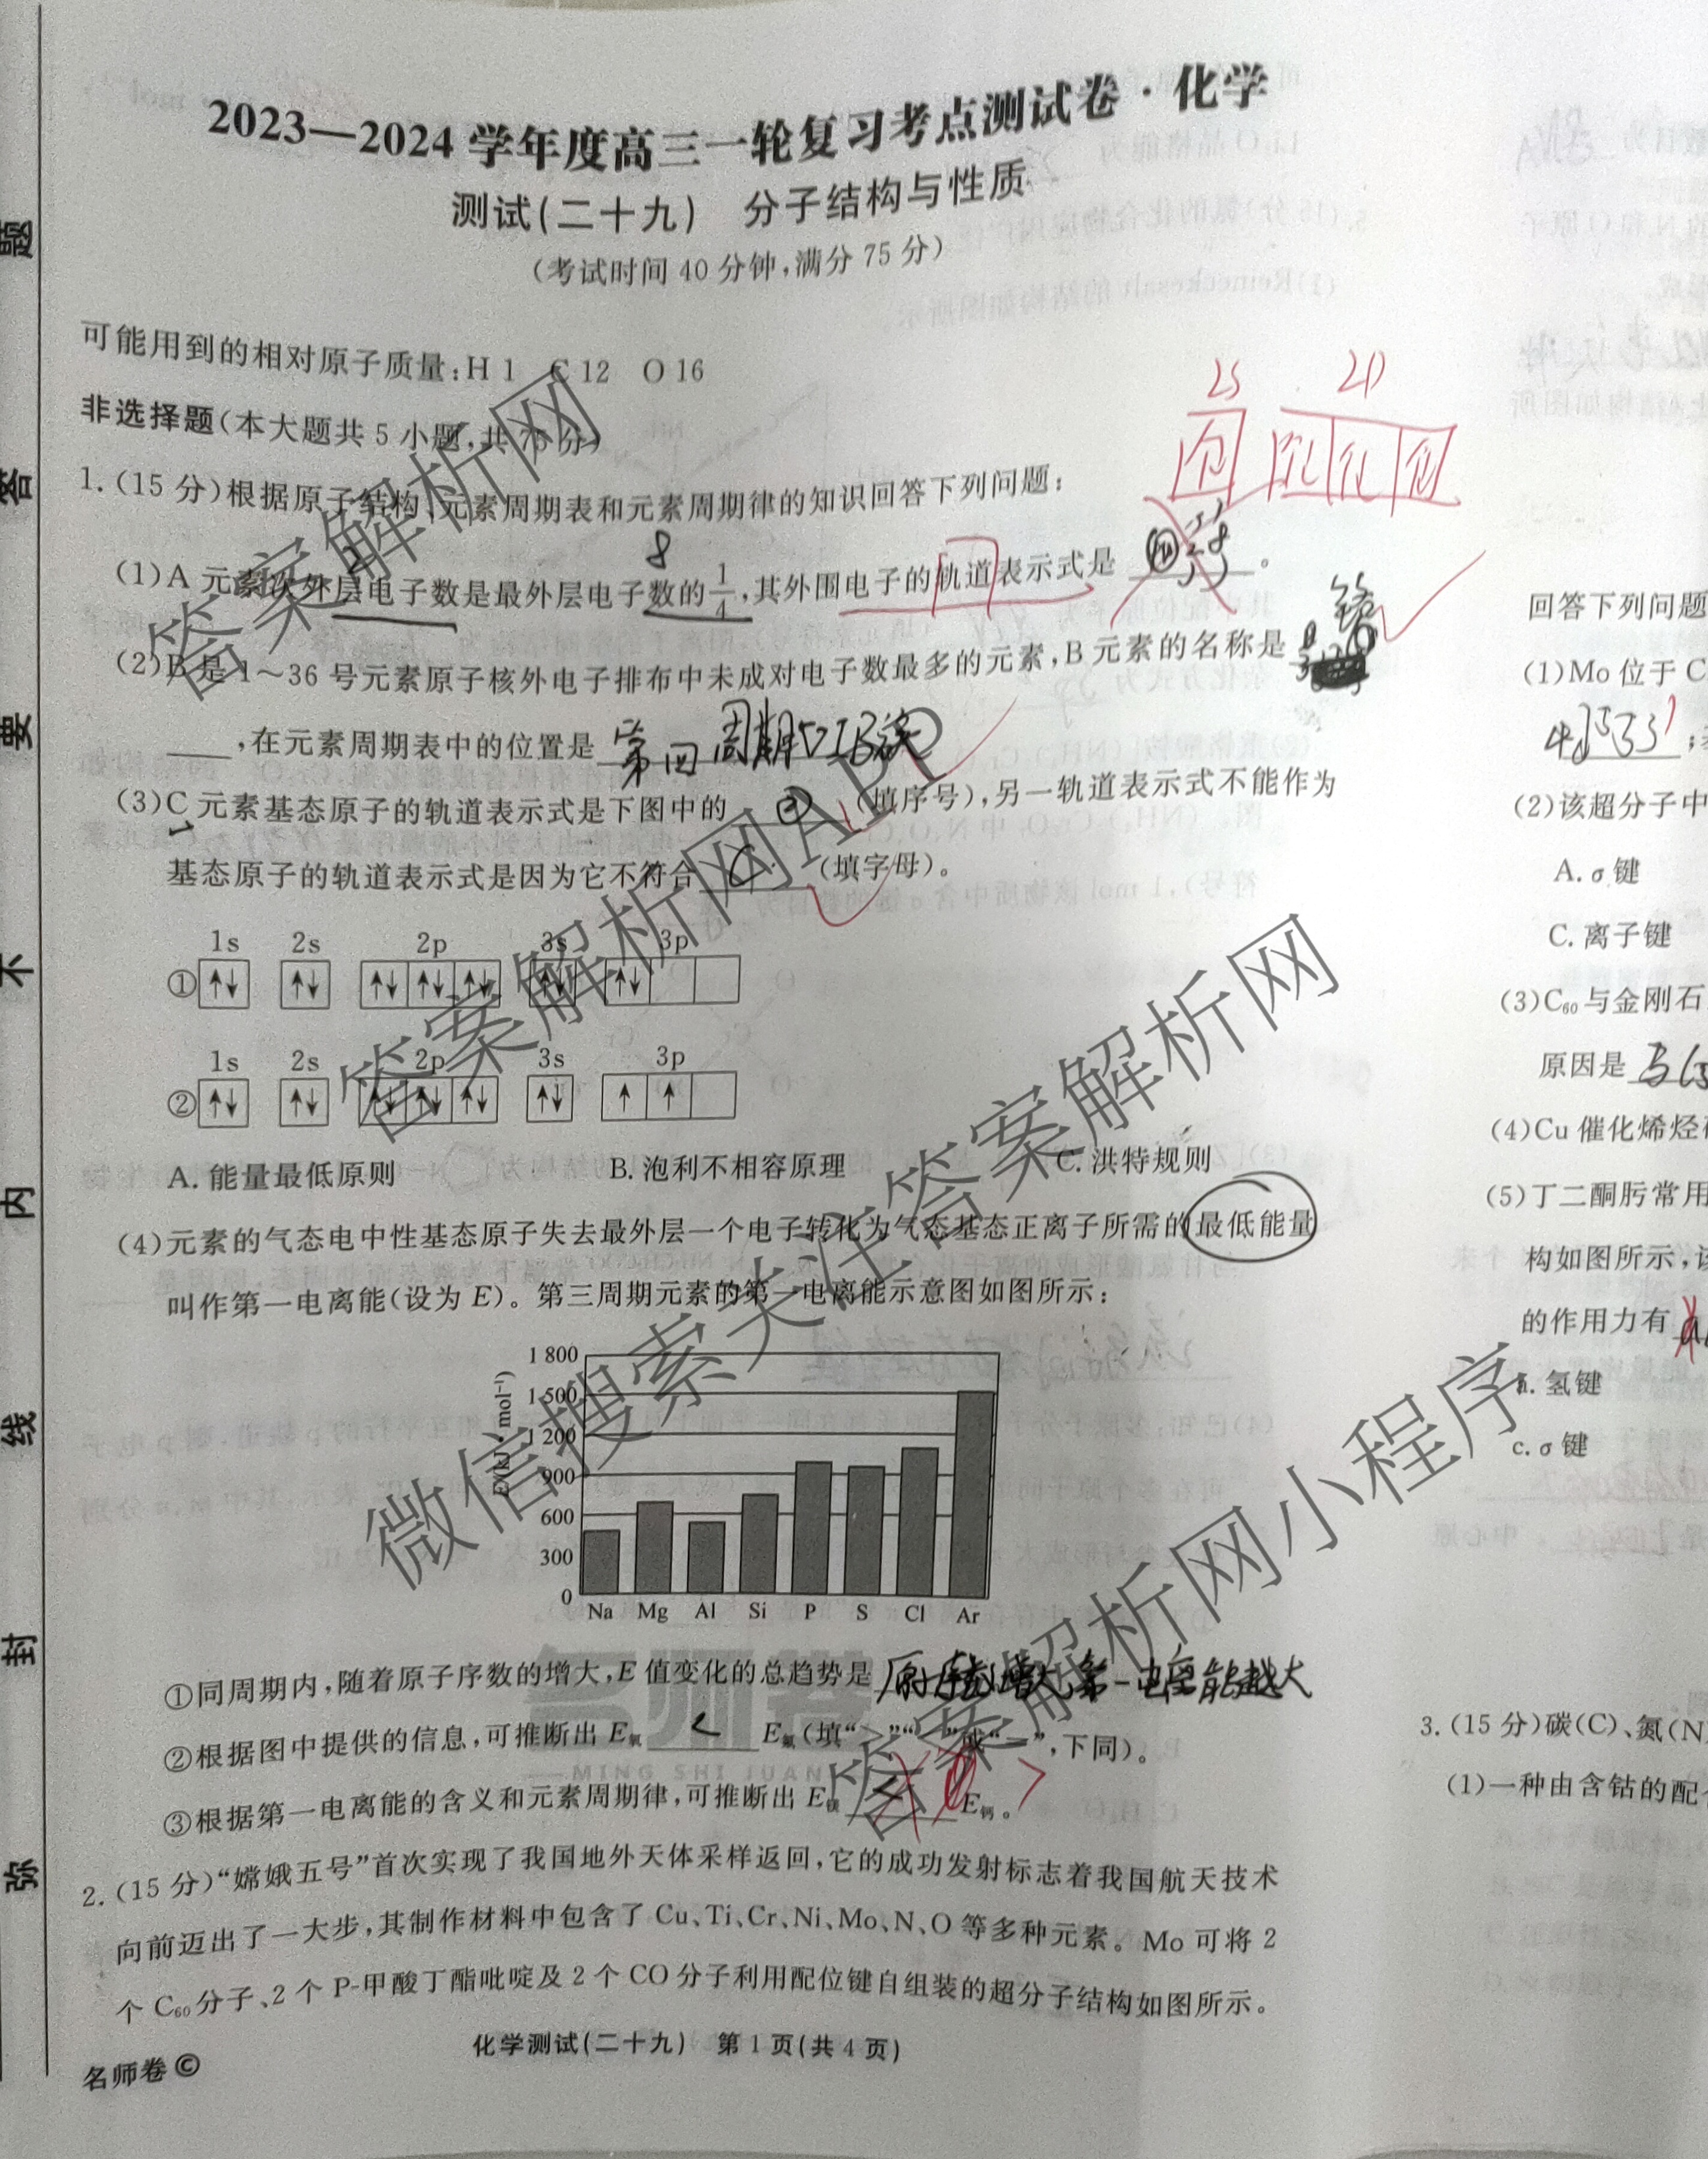 2023—2024 学年度高三一轮复习考点测试卷·化学
测试(二十九) 分子结构与性质
(考试时间 40 分钟,满分 75 分)
可能用到的相对原子质量:H 1 C 12 O 16
非选择题(本大题共 5 小题,共 75 分)
1.(15 分)根据原子结构、元素周期表和元素周期律的知识回答下列问题:
2s 2p
(1)A 元素次外层电子数是最外层电子数的1/4,其外围电子的轨道表示式是
2 8
(2)B 是 1~36 号元素原子核外电子排布中未成对电子数最多的元素,B 元素的名称是 铬
,在元素周期表中的位置是 第四周期VIB族
(3)C 元素基态原子的轨道表示式是下图中的 ② (填序号),另一轨道表示式不能作为
基态原子的轨道表示式是因为它不符合 C (填字母)。
1s 2s 2p 3s 3p
① ↑↓ ↑↓ ↑↓ ↑↓ ↑↓ ↑↓ ↑↓
1s 2s 2p 3s 3p
② ↑↓ ↑↓ ↑↓ ↑↓ ↑↓ ↑↓ ↑ ↑
A. 能量最低原则 B. 泡利不相容原理 C. 洪特规则
(4)元素的气态电中性基态原子失去最外层一个电子转化为气态基态正离子所需的最低能量
叫作第一电离能(设为 E)。第三周期元素的第一电离能示意图如图所示:
E(kJ·mol⁻¹)
1 800
1 500
1 200
900
600
300
0
Na Mg Al Si P S Cl Ar
①同周期内,随着原子序数的增大,E 值变化的总趋势是 增大 第一电离能越大
②根据图中提供的信息,可推断出 E氧 < E氟(填“>”“<”或“=”,下同)。
③根据第一电离能的含义和元素周期律,可推断出 E镁 E钙。 >
2.(15 分)“嫦娥五号”首次实现了我国地外天体采样返回,它的成功发射标志着我国航天技术
向前迈出了一大步,其制作材料中包含了 Cu、Ti、Cr、Ni、Mo、N、O 等多种元素。Mo 可将 2
个 C₆₀分子、2 个 P-甲酸丁酯吡啶及 2 个 CO 分子利用配位键自组装的超分子结构如图所示。
化学测试(二十九) 第 1 页(共 4 页)
名师卷©
名师卷
MING SHI JUAN
回答下列问题
(1)Mo 位于 C
4d⁵5s¹
(2)该超分子中
A. σ 键
C. 离子键
(3)C₆₀与金刚石
原因是
(4)Cu 催化烯烃
(5)丁二酮肟常用
构如图所示,该
的作用力有
a. 氢键
c. σ 键
3.(15 分)碳(C)、氮(N)
(1)一种由含钴的配合
题
答
要
不
内
线
封
弥
答案解析网
答案解析网APP
微信搜索关注答案解析网
答案解析网小程序